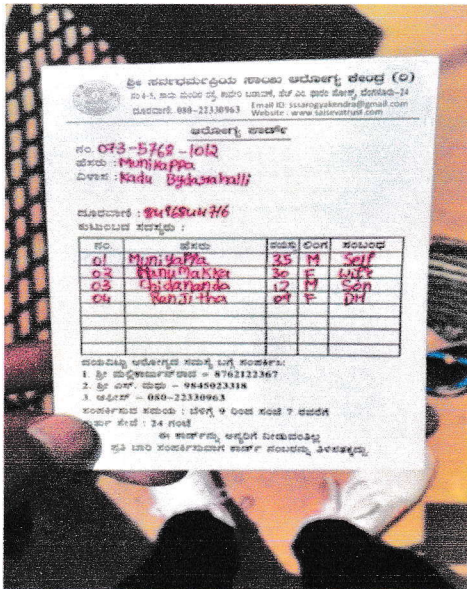 ಶ್ರೀ ಸರ್ವಧರ್ಮಪ್ರಿಯ ಸಾಯಿ ಆರೋಗ್ಯ ಕೇಂದ್ರ (ರಿ)
ದೂರವಾಣಿ: 080-22330963 Email ID: sssarogyakendra@gmail.com
Website : www.saisevatrust.com
ಆರೋಗ್ಯ ಕಾರ್ಡ್
ನಂ. 073-5768-1012
ಹೆಸರು : Muniyappa
ವಿಳಾಸ : Kadu Bydarahalli
ದೂರವಾಣಿ :
ಕುಟುಂಬದ ಸದಸ್ಯರು :
ನಂ. ಹೆಸರು ವಯಸ್ಸು ಲಿಂಗ ಸಂಬಂಧ
01 Muniyappa 35 M Self
02 Manumakka 30 F Wife
03 Chidananda 12 M Son
04 Ranjitha 09 F DH
ದಯವಿಟ್ಟು ಆರೋಗ್ಯದ ಸಮಸ್ಯೆ ಬಗ್ಗೆ ಸಂಪರ್ಕಿಸಿ:
1. ಶ್ರೀ ಮಲ್ಲಿಕಾರ್ಜುನ್ ರಾವ್ = 8762122367
2. ಶ್ರೀ ಎಸ್. ಮಧು – 9845023318
3. ಆಫೀಸ್ – 080-22330963
ಸಂಪರ್ಕಿಸುವ ಸಮಯ : ಬೆಳಿಗ್ಗೆ 9 ರಿಂದ ಸಂಜೆ 7 ರವರೆಗೆ
ತುರ್ತು ಸೇವೆ : 24 ಗಂಟೆ
ಈ ಕಾರ್ಡ್‌ನ್ನು ಅನ್ಯರಿಗೆ ನೀಡುವಂತಿಲ್ಲ
ಪ್ರತಿ ಬಾರಿ ಸಂಪರ್ಕಿಸುವಾಗ ಕಾರ್ಡ್ ನಂಬರನ್ನು ತಿಳಿಸತಕ್ಕದ್ದು